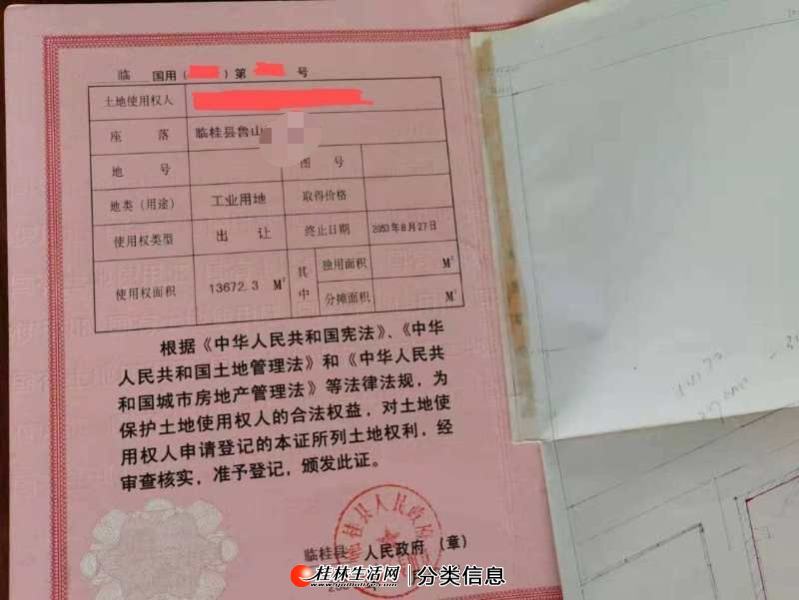 临 国用( )第 号
土地使用权人
座 落 临桂县鲁山
地 号 图 号
地类(用途) 工业用地 取得价格
使用权类型 出 让 终止日期 2053年8月27日
使用权面积 13672.3 M² 其中 独用面积 M²
分摊面积 M²
根据《中华人民共和国宪法》、《中华
人民共和国土地管理法》和《中华人民共
和国城市房地产管理法》等法律法规,为
保护土地使用权人的合法权益,对土地使
用权人申请登记的本证所列土地权利,经
审查核实,准予登记,颁发此证。
临桂县人民政府
临桂县 人民政府 (章)
桂林生活网 分类信息